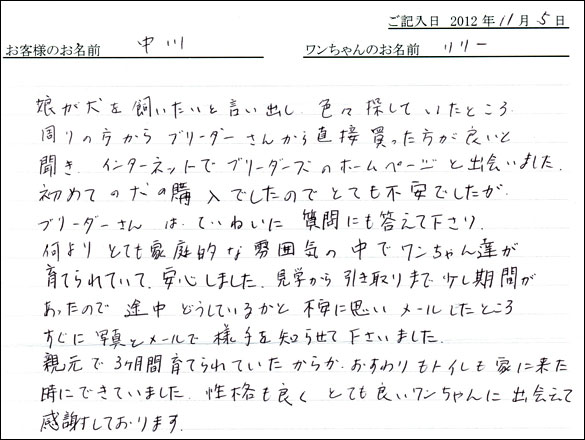 ご記入日 2012年11月5日
お客様のお名前 中川 ワンちゃんのお名前 リリー
娘が犬を飼いたいと言い出し 色々探していたところ
周りの方からブリーダーさんから直接買った方が良いと
聞き インターネットでブリーダーズのホームページと出会いました.
初めての犬の購入でしたのでとても不安でしたが.
ブリーダーさんは.ていねいに質問にも答えて下さり.
何よりとても家庭的な雰囲気の中でワンちゃん達が
育てられていて.安心しました.見学から引き取りまで少し期間が
あったので途中どうしているかと不安に思いメールしたところ
すぐに写真とメールで様子を知らせて下さいました.
親元で3ヶ月間育てられていたからか.おすわりもトイレも家に来た
時にできていました.性格も良くとても良いワンちゃんに出会えて
感謝しております.